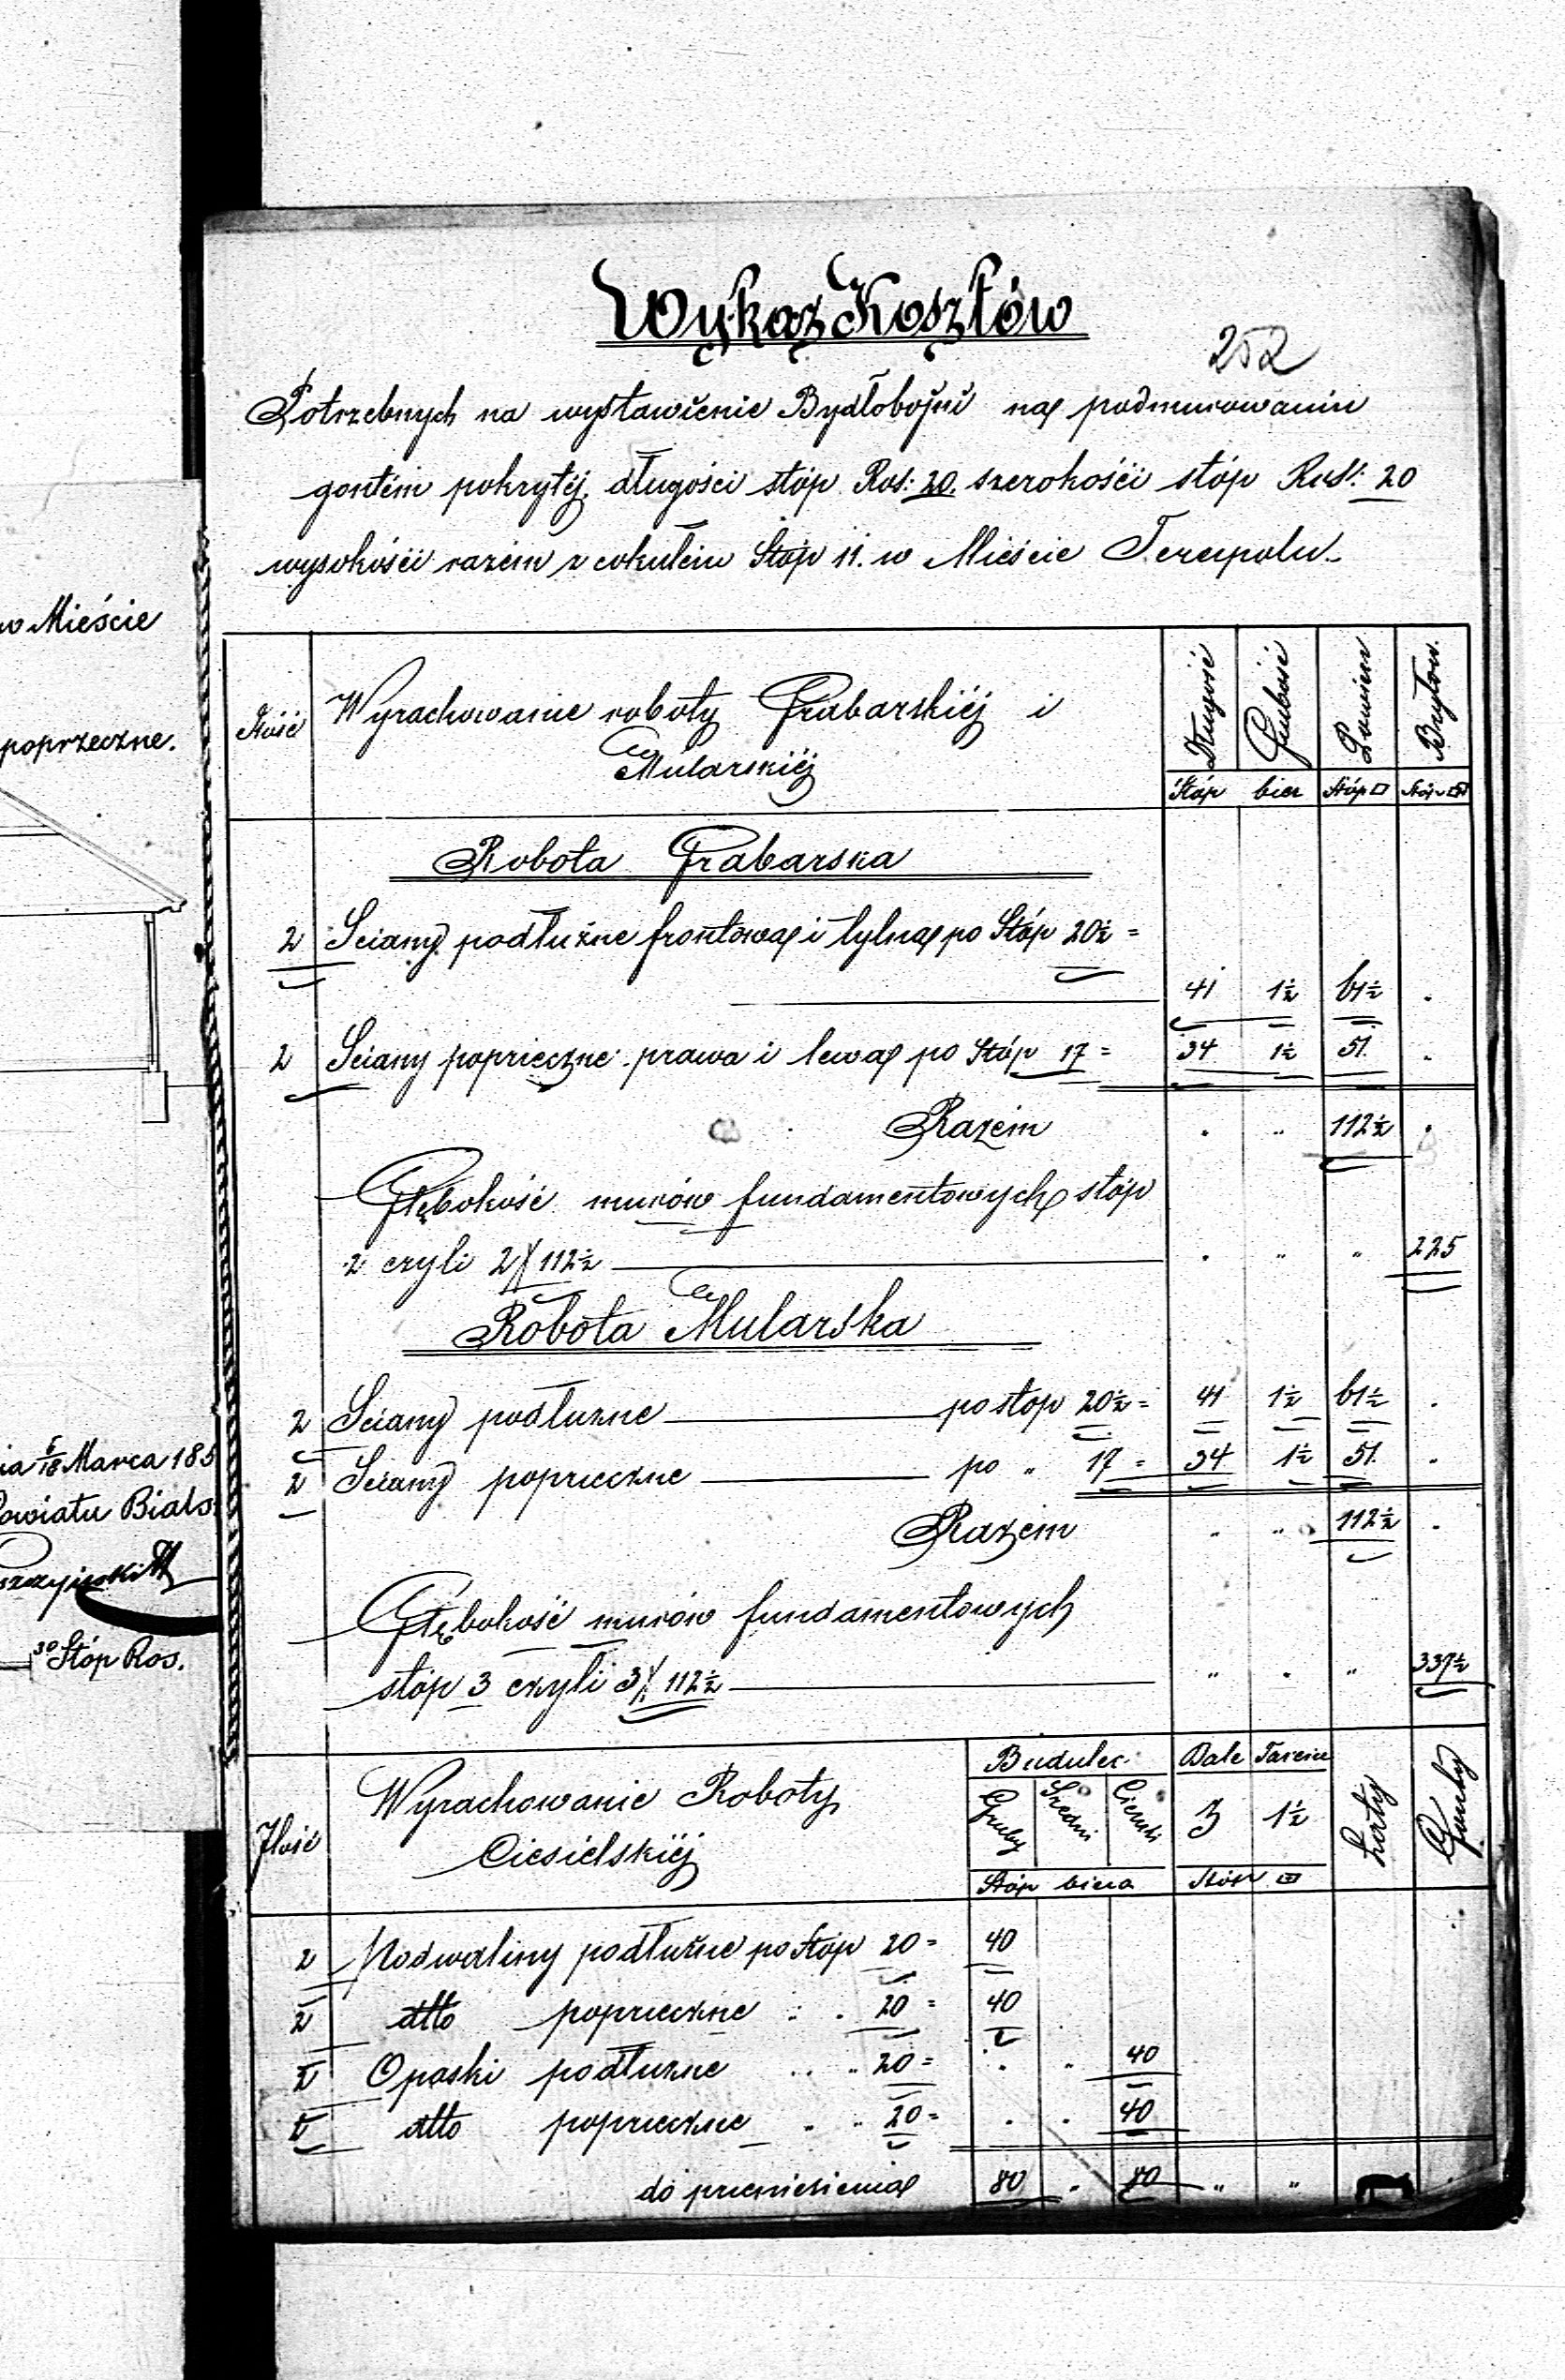 w Mieście
poprzeczne.
Marca 185
Powiatu Bials.
30 Stóp Ros.
Wykaz Kosztów
252
Potrzebnych na wystawienie Bydłobojni na podmurowaniu
gontem pokrytéj, długości stóp Ros: 20. szerokości stóp Ros: 20
wysokości razem z cokułem Stóp 11. w Mieście Terespolu.
Ilość Wyrachowanie roboty Grabarskiéj i Długość Grubość Poziom Bryłow.
Mularskiéj
Stóp bież Stóp □ Stóp
Robota Grabarska
2 Sciany podłużne frontowa i tylna po Stóp 20½ =
41 1½ 61½ .
2 Sciany poprzeczne prawa i lewa po Stóp 17 = 34 1½ 51. .
Razem . " 112½ .
Głębokość murów fundamentowych stóp
2 czyli 2 X 112½ . " " 225
Robota Mularska
2 Sciany podłużne po stóp 20½ = 41 1½ 61½ .
2 Sciany poprzeczne po " 17 = 34 1½ 51. .
Razem " " 112½ .
Głębokość murów fundamentowych
stóp 3 czyli 3 X 112½ " . " 337½
Ilość Wyrachowanie Roboty Budulec Bale Tarcice Łaty Gonty
Ciesielskiéj Gruby Średni Cienki 3 1½
Stóp bieżą Stóp
2 Podwaliny podłużne po Stóp 20 = 40
2 dtto poprzeczne " . 20 = 40
2 Opaski podłużne " " 20 = . " 40
2 dtto poprzeczne . " 20 = . . 40
do przeniesienia 80 . 80 " "